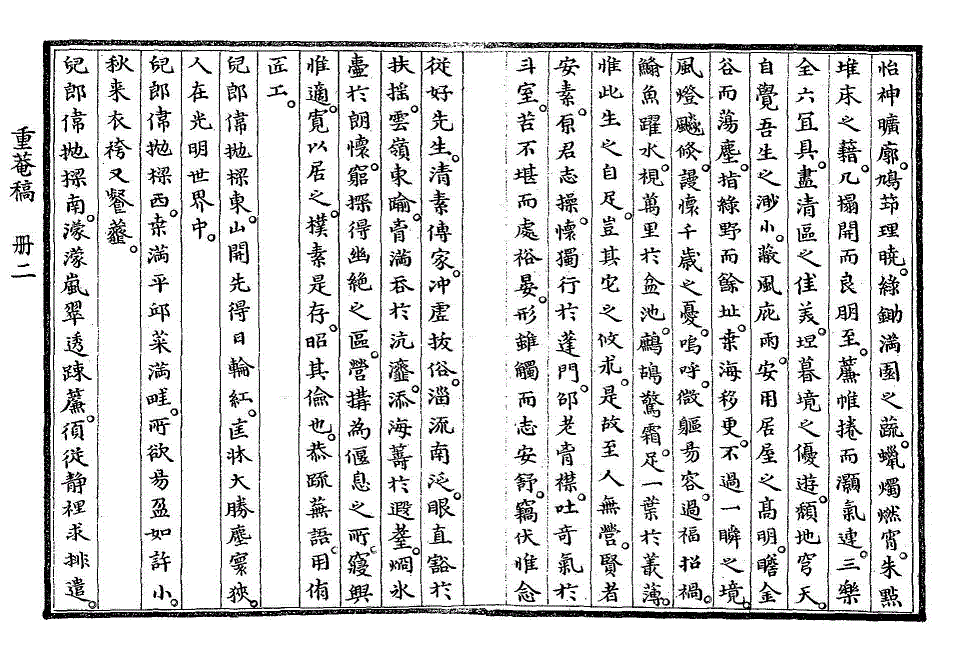 怡神曠廓。鳩笻理曉。綠鋤滿園之蔬。蠟燭燃宵。朱點
堆床之藉。几榻開而良朋至。簾帷捲而灝氣連。三樂
全六冝具。盡清區之佳美。埕暮境之優遊。頹地穹天。
自覺吾生之渺小。蔽風庇雨。安用居屋之高明。瞻金
谷而蕩塵。指綠野而餘址。桒海移更。不過一瞬之境。
風燈飈倐。謾懷千歲之憂。嗚呼。微軀易容。過福招禍。
鯈魚躍水。視萬里於盆池。鷦鴣驚霜。足一葉於叢薄。
惟此生之自足。豈其它之攸求。是故至人無營。賢者
安素。原君志操。懷獨行於蓬門。邵老胷襟。吐奇氣於
斗室。苦不堪而處裕晏。形雖觸而志安舒。竊伏惟念
從好先生。清素傳家。冲虛拔俗。淄流南泛。眼直豁於
扶搖。雲嶺東瞻。胷滿吞於沆瀣。添海籌於遐耋。炯氷
壷於朗懷。窮探得幽絶之區。營搆為偃息之所。寢興
惟適。寬以居之。樸素是存。昭其儉也。恭疏蕪語。用侑
匠工。
兒郎偉抛樑東。山開先得日輪紅。匡牀大勝塵寰狹。
人在光明世界中。
兒郎偉抛樑西。桒滿平邱菜滿畦。所欲易盈如許小。
秋来衣袴又餐虀。
兒郎偉抛樑南。濛濛嵐翠透踈簾。湏従静裡求排遣。
重菴稿 册二